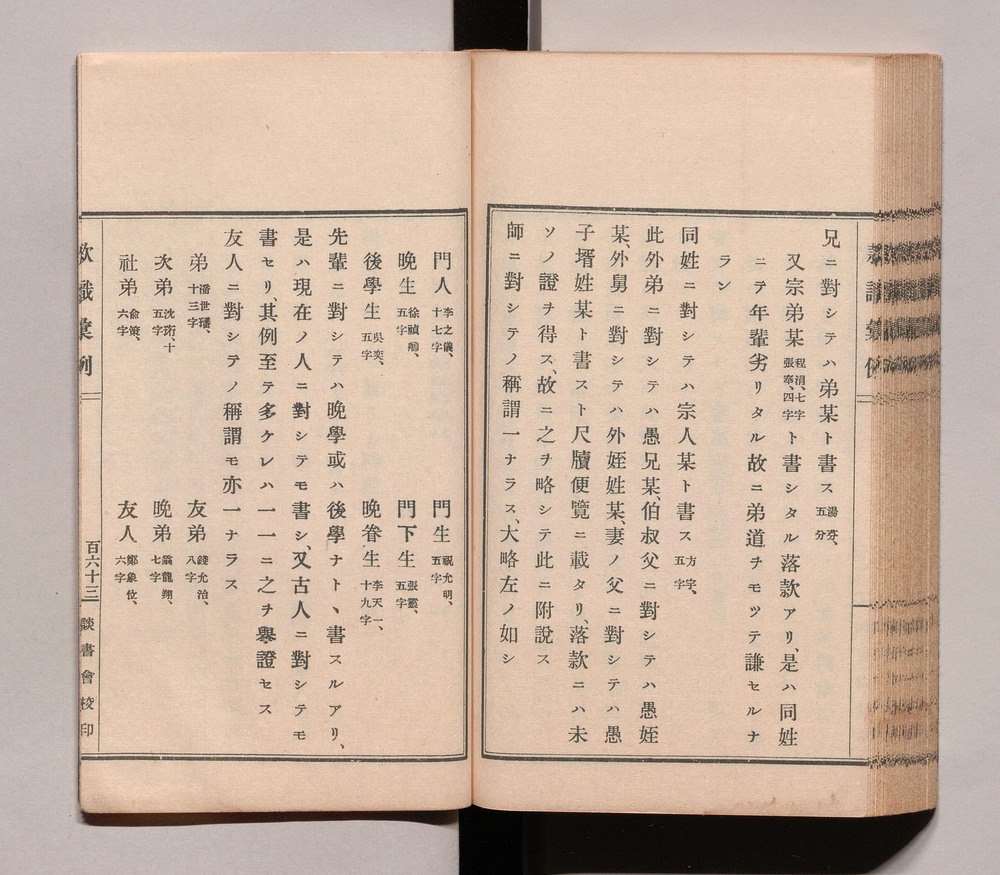 兄ニ對シテハ弟某ト書ス 湯芬、五分
又宗弟某 程涓、七字 張奉、四字 ト書シタル落款アリ、是ハ同姓
ニテ年輩劣リタル故ニ弟道チモツテ謙セルナ
ラン
同姓ニ對シテハ宗人某ト書ス 方字、五字
此外弟ニ對シテハ愚兄某、伯叔父ニ對シテハ愚姪
某、外舅ニ對シテハ外姪姓某、妻ノ父ニ對シテハ愚
子壻姓某ト書スト尺牘便覽ニ載タリ、落款ニハ未
ソノ證ヲ得ス、故ニ之ヲ略シテ此ニ附說ス
師ニ對シテノ稱謂一ナラス、大略左ノ如シ
門人 李之儀、十七字 門生 祝允明、五字
晚生 五字 門下生 張靈、五字
後學生 吳奕、五字 晚眷生 李天一、十九字
先輩ニ對シテハ晚學或ハ後學ナト、書スルアリ、
是ハ現在ノ人ニ對シテモ書シ、又古人ニ對シテモ
書セリ、其例至テ多ケレハ一一ニ之チ舉證セス
友人ニ對シテノ稱謂モ亦一ナラス
弟 潘世璠、十三字 友弟 錢允治、八字
次弟 沈珩、十五字 晚弟 翁龍翔、七字
社弟 兪策、六字 友人 鄭象位、六字
款識彙例
百六十三
談書會校印